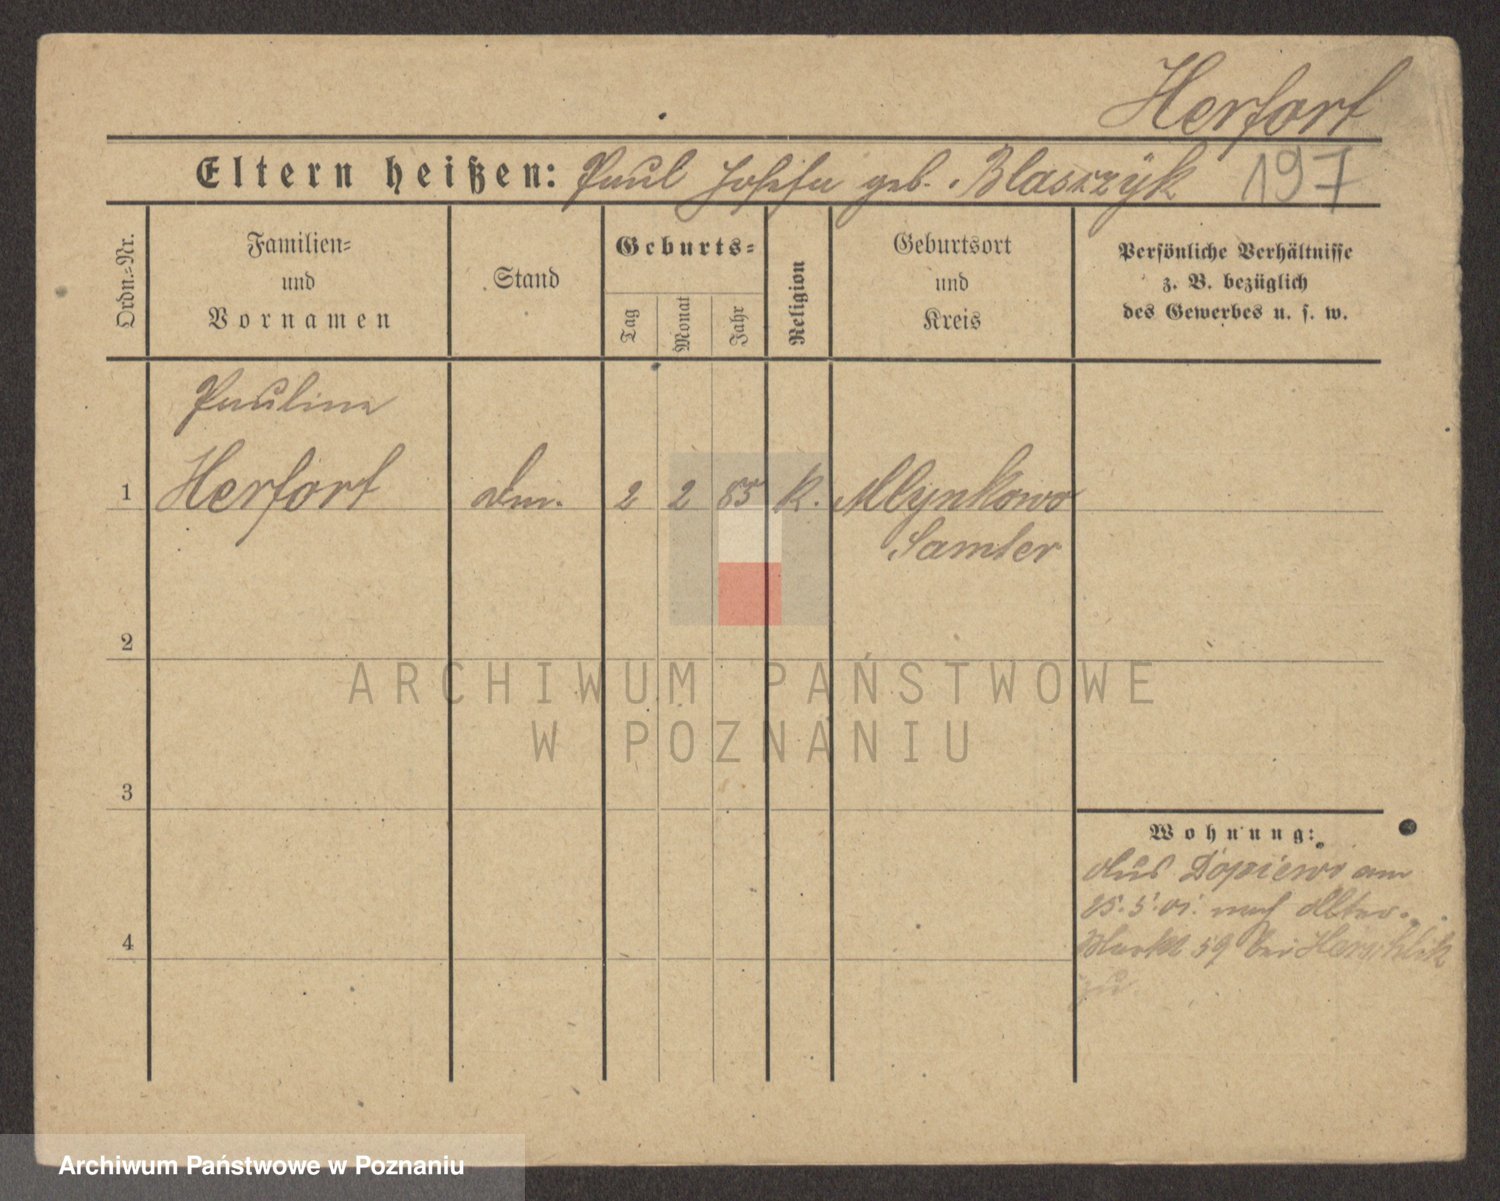 Herfort
Eltern heißen: Paul Josefa geb. Blaszzyk 197
Ordn.=Nr.
Familien=
und
Vornamen
Stand
Geburts=
Tag
Monat
Jahr
Religion
Geburtsort
und
Kreis
Persönliche Verhältnisse
z. B. bezüglich
des Gewerbes u. s. w.
Pauline
1 Herfort 2 2 85 k. Mlynkowo
Samter
2
3
4
Wohnung:
Aus Dopiewo am
5.01. nach Alter
Markt 59 bei
zu
ARCHIWUM PAŃSTWOWE
W POZNANIU
Archiwum Państwowe w Poznaniu